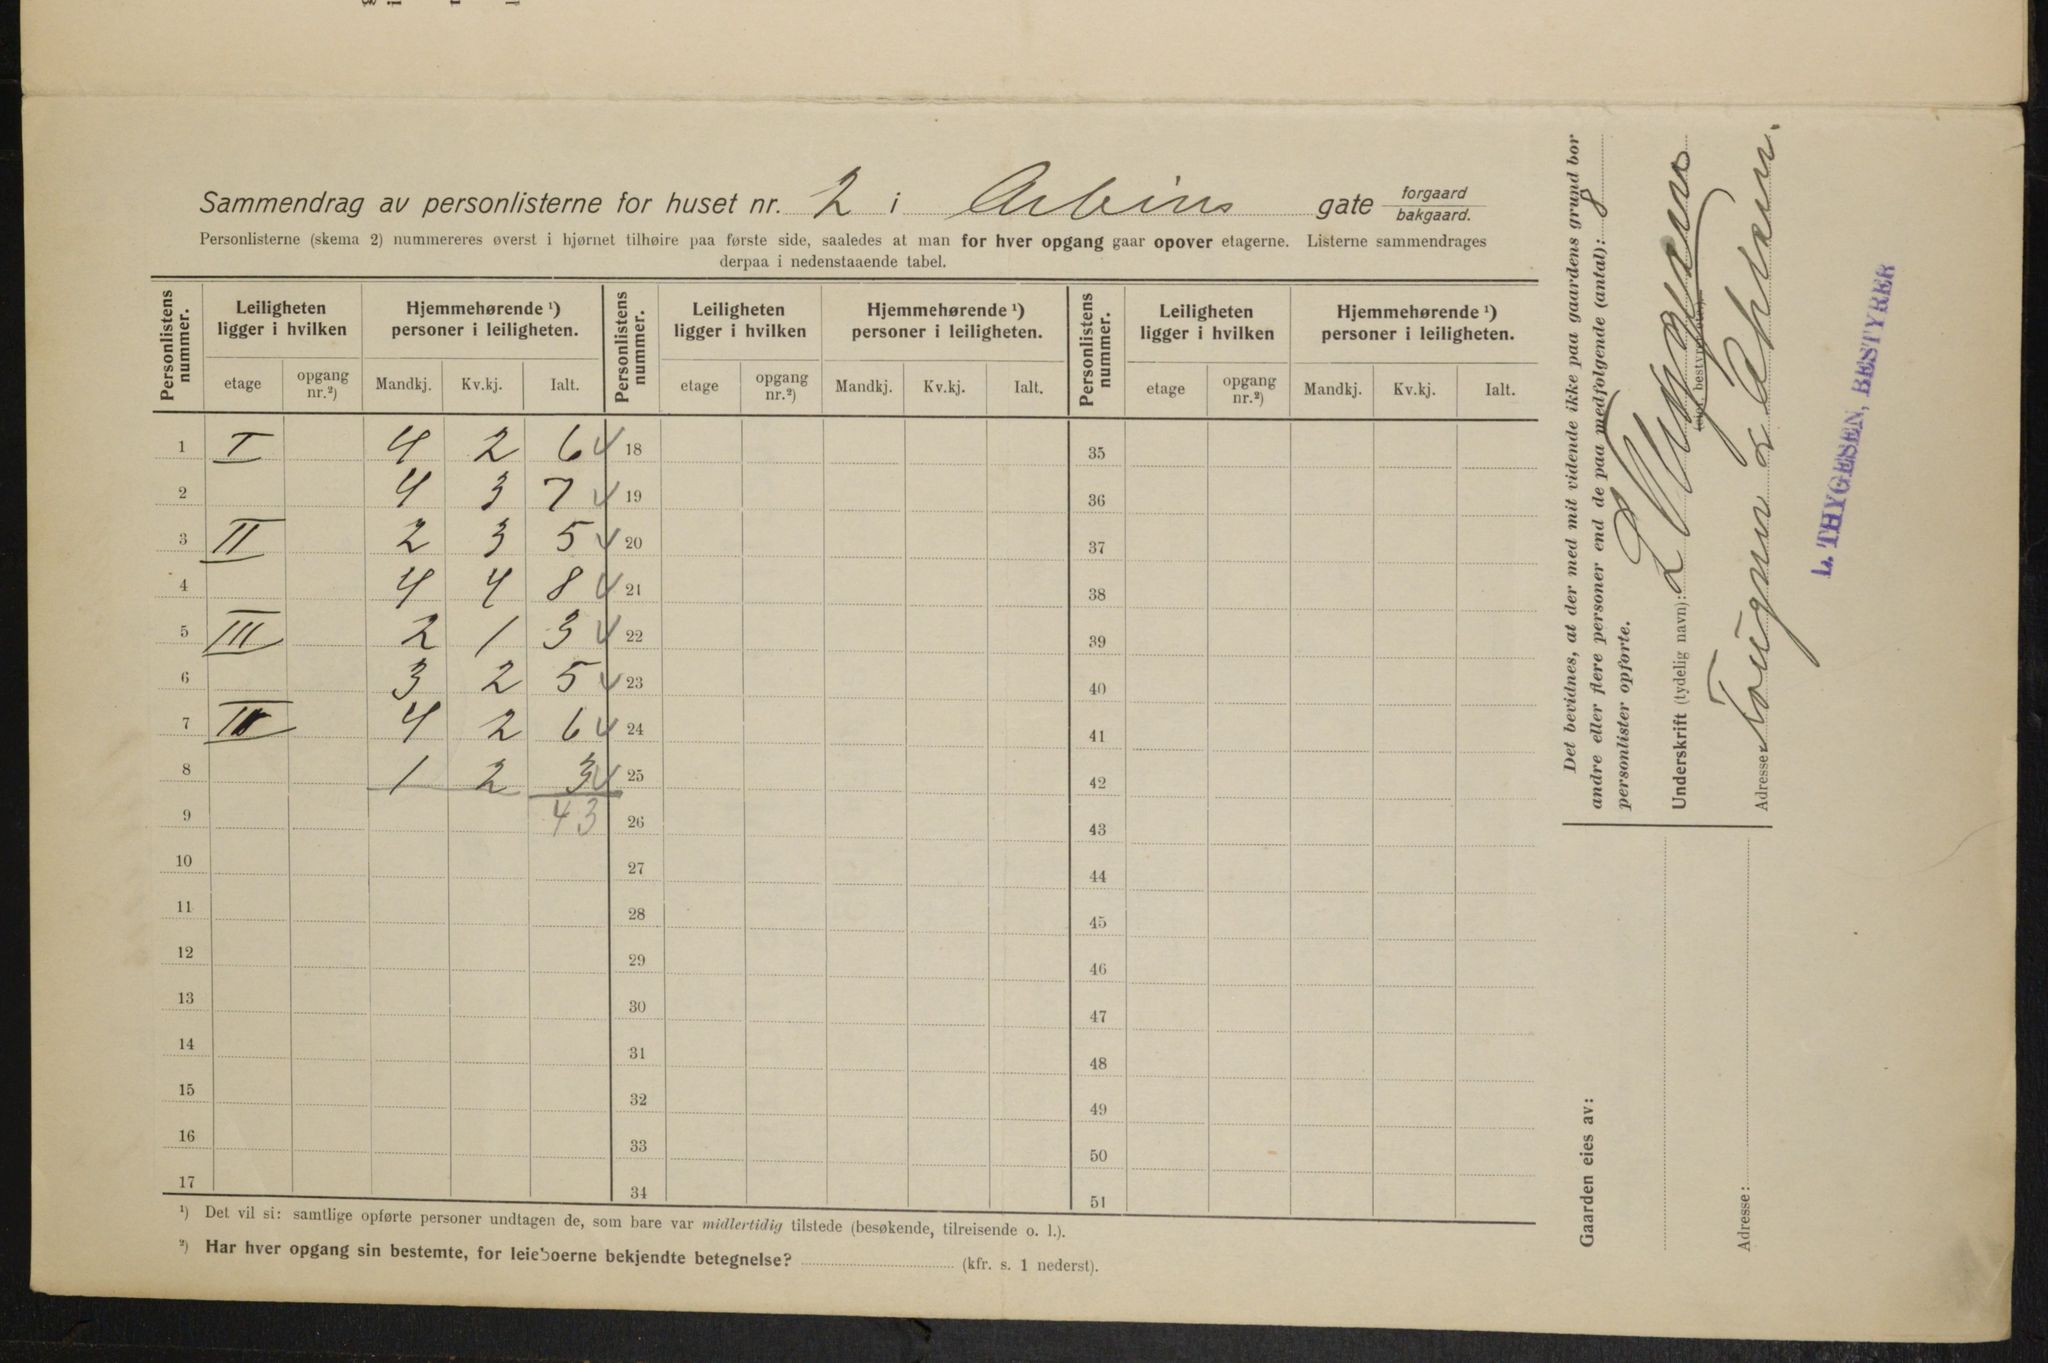 Sammendrag av personlisterne for huset nr. 2 i Arbins gate forgaard / bakgaard.
Personlisterne (skema 2) nummereres øverst i hjørnet tilhøire paa første side, saaledes at man for hver opgang gaar opover etagerne. Listerne sammendrages
derpaa i nedenstaaende tabel.
Personlistens nummer. Leiligheten ligger i hvilken Hjemmehørende ¹) personer i leiligheten. Personlistens nummer. Leiligheten ligger i hvilken Hjemmehørende ¹) personer i leiligheten. Personlistens nummer. Leiligheten ligger i hvilken Hjemmehørende ¹) personer i leiligheten.
etage opgang nr.²) Mandkj. Kv.kj. Ialt. etage opgang nr.²) Mandkj. Kv.kj. Ialt. etage opgang nr.²) Mandkj. Kv.kj. Ialt.
1 I 4 2 6 18 35
2 4 3 7 19 36
3 II 2 3 5 20 37
4 4 4 8 21 38
5 III 2 1 3 22 39
6 3 2 5 23 40
7 4 2 6 24 41
8 1 2 3 25 42
9 43 26 43
10 27 44
11 28 45
12 29 46
13 30 47
14 31 48
15 32 49
16 33 50
17 34 51
¹) Det vil si: samtlige opførte personer undtagen de, som bare var midlertidig tilstede (besøkende, tilreisende o. l.).
²) Har hver opgang sin bestemte, for leieboerne bekjendte betegnelse? (kfr. s. 1 nederst).
Det bevidnes, at der med mit vidende ikke paa gaardens grund bor
andre eller flere personer end de paa medfølgende (antal): 8
personlister opførte.
Underskrift (tydelig navn): L Thygesen
(eier, bestyrer etc.).
Adresse:
L. THYGESEN, BESTYRER
Gaarden eies av:
Adresse: